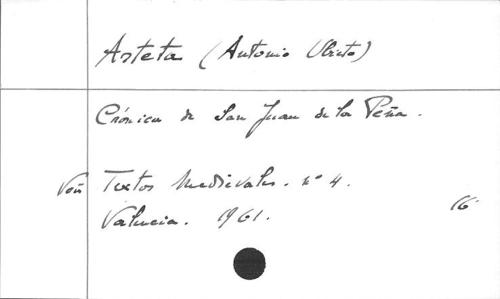 Arteta (Antonio Ubieto)
Crónica de San Juan de la Peña.
Voir Textos Medievales. nº 4.
Valencia. 1961. 16